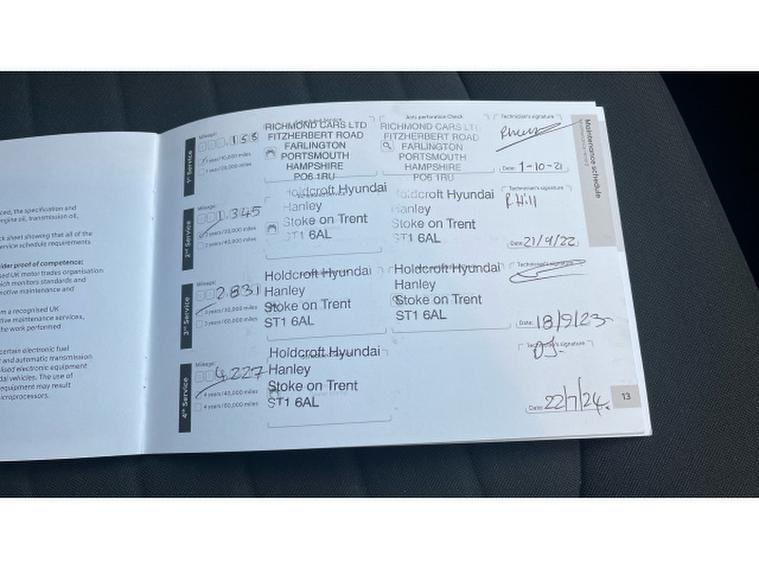 ced, the specification and
engine oil, transmission oil,
ck sheet showing that all of the
service schedule requirements
ider proof of competence:
sed UK motor trades organisation
ich monitors standards and
motive maintenance and
m a recognised UK
tive maintenance services,
the work performed
certain electronic fuel
and automatic transmission
lised electronic equipment
dai vehicles. The use of
equipment may result
icroprocessors.
1st Service
Mileage:
155
1 year/10,000 miles
RICHMOND CARS LTD
FITZHERBERT ROAD
FARLINGTON
PORTSMOUTH
HAMPSHIRE
PO6 1RU
Anti perforation Check
RICHMOND CARS LTD
FITZHERBERT ROAD
FARLINGTON
PORTSMOUTH
HAMPSHIRE
PO6 1RU
Technician's signature
Date: 1-10-21
2nd Service
1,345
2 years/20,000 miles
Holdcroft Hyundai
Hanley
Stoke on Trent
ST1 6AL
Holdcroft Hyundai
Hanley
Stoke on Trent
ST1 6AL
Technician's signature
P. Hill
Date: 21/9/22
3rd Service
Mileage:
2831
3 years/30,000 miles
Holdcroft Hyundai
Hanley
Stoke on Trent
ST1 6AL
Holdcroft Hyundai
Hanley
Stoke on Trent
ST1 6AL
Technician's signature
Date: 18/9/23
4th Service
Mileage:
4227
4 years/40,000 miles
Holdcroft Hyundai
Hanley
Stoke on Trent
ST1 6AL
Technician's signature
Date: 22/7/24.
Maintenance schedule
13